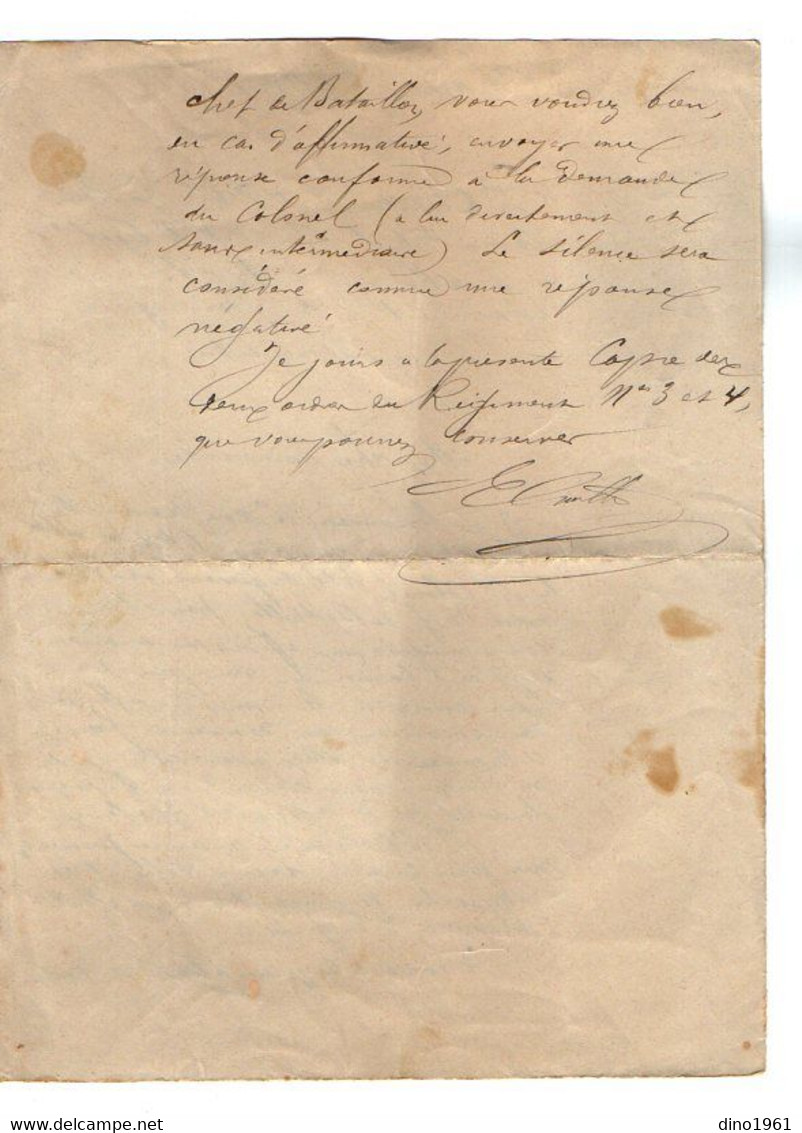 chef de Bataillon, vous voudrez bien,
en cas d'affirmative, envoyer une
réponse conforme à la demande
du Colonel (à lui directement et
sans intermédiaire) Le silence sera
considéré comme une réponse
négative
Je joins à la présente Copie des
deux ordres du Régiment Nos 3 et 4,
que vous pourrez conserver
dino1961